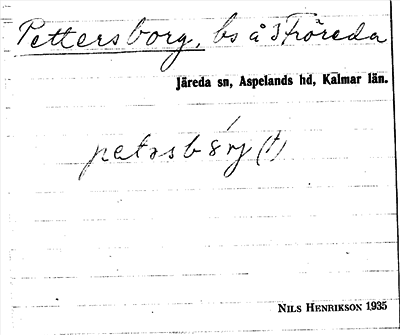 Pettersborg, bs å Fröreda
Järeda sn, Aspelands hd, Kalmar län.
NILS HENRIKSON 1935